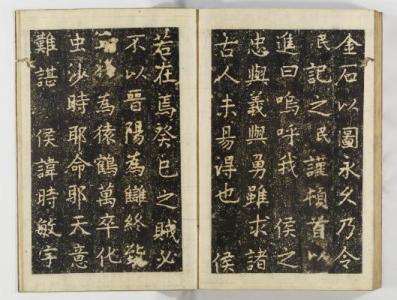 金石以圖永久乃令
民記之民謹頓首以
進曰嗚呼我 侯之
忠與義與勇雖求諸
古人未易得也 侯
若在焉癸巳之賊必
不以晉陽為讎終
為猿鶴萬卒化
虫沙時耶命耶天意
難諶 侯諱時敏字